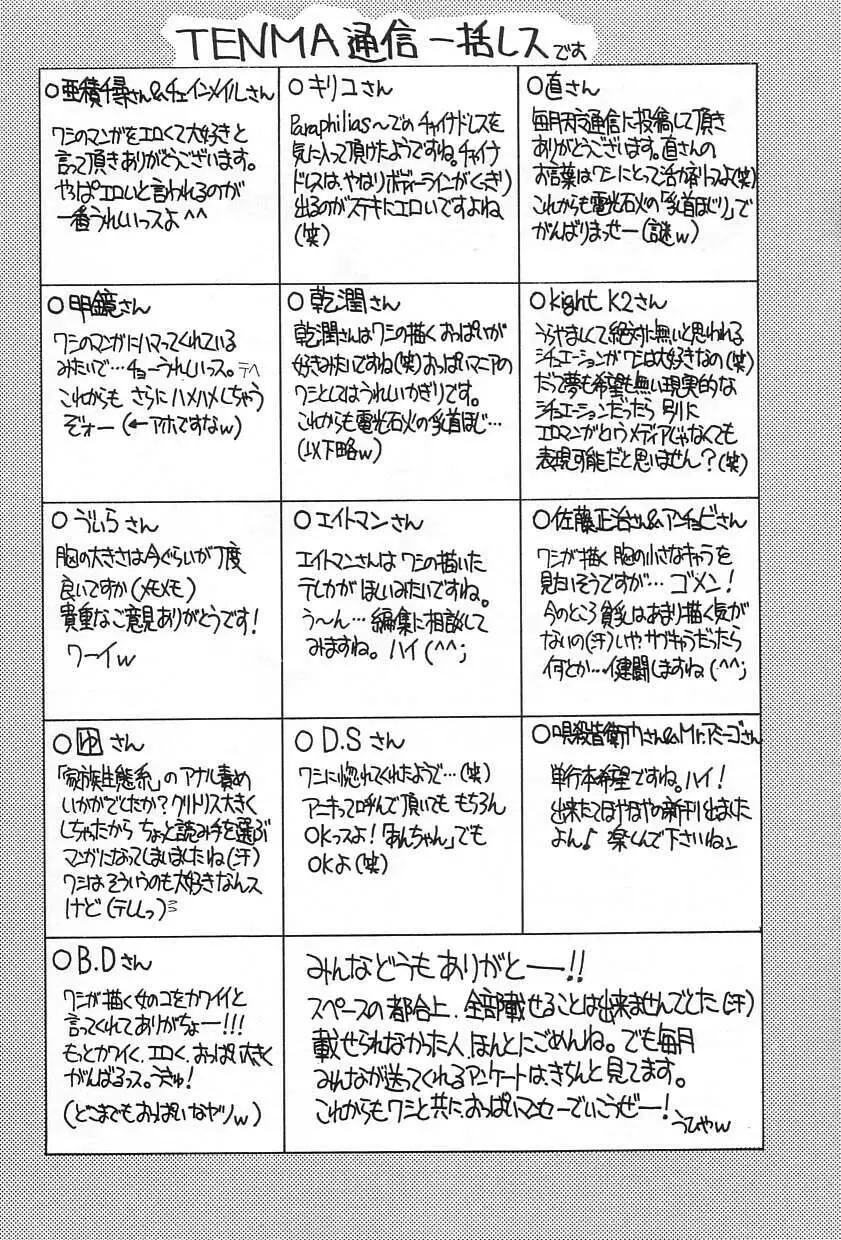 TENMA通信一括レスです
○亜積千尋さん&チェインメイルさん
ワシのマンガをエロくて大好きと
言って頂きありがとうございます。
やっぱエロいと言われるのが
一番うれしいっスよ^^
○キリコさん
Paraphilias〜でのチャイナドレスを
気に入って頂けたようですね。チャイナ
ドレスは、やはりボディーラインがくっきり
出るのがステキにエロいですよね
(笑)
○直さん
毎月天魔通信に投稿して頂き
ありがとうございます。直さんの
お言葉はワシにとって活力剤っスよ(笑)
これからも電光石火の「乳首ほじり」で
がんばりまっせー(謎w)
○明鏡さん
ワシのマンガにハマってくれている
みたいで…チョーうれしいっス。テヘ
これからも さらにハメハメしちゃう
ぞォー(←アホですなw)
○乾潤さん
乾潤さんはワシの描くおっぱいが
好きみたいですね(笑)おっぱいマニアの
ワシとしてはうれしいかぎりです。
これからも電光石火の乳首ほじ…
(以下略w)
○kight K2さん
うらやましくて絶対に無いと思われる
シチュエーションがワシは大好きなの(笑)
だって夢も希望も無い現実的な
シチュエーションだったら 別に
エロマンガというメディアじゃなくても
表現可能だと思いません?(笑)
○うぃらさん
胸の大きさは今ぐらいが丁度
良いですか(メモメモ)
貴重なご意見ありがとうです!
ワーイw
○エイトマンさん
エイトマンさんは ワシの描いた
テレカがほしいみたいですね。
う〜ん…編集に相談して
みますね。ハイ(^^;
○佐藤正治さん&アンチョビさん
ワシが描く胸の小さなキャラを
見たいそうですが… ゴメン!
今のところ貧乳はあまり描く気が
ないの(汗)いや、サブキャラだったら
何とか…イ健闘しますね(^^;
○ゆさん
「家族生態系」のアナル責め
いかがでしたか?クリトリス大きく
しちゃたから ちょっと読み手を選ぶ
マンガになってしまいましたね(汗)
ワシはそういうのも大好きなんス
けど(テレレっ)
○D.Sさん
ワシに惚れてくれたようで…(笑)
アニキって呼んで頂いても もちろん
OKっスよ!「あんちゃん」でも
OKよ(笑)
○呪殺者衛門さん&Mr.アミーゴさん
単行本希望ですね。ハイ!
出来たてほやほやの新刊出ました
よん♪ 楽しんで下さいね」
○B.Dさん
ワシが描く女のコをカワイイと
言ってくれてありがちょー!!!
もっとカワイく、エロく、おっぱい大きく
がんばるっス。うきゅ!
(どこまでもおっぱいなヤツw)
みんなどうもありがとー!!
スペースの都合上、全部載せることは出来ませんでした(汗)
載せられなかった人、ほんとにごめんね。でも毎月
みんなが送ってくれるアンケートは、きちんと見てます。
これからもワシと共におっぱいマンセーでいこうぜー!
うひゃw